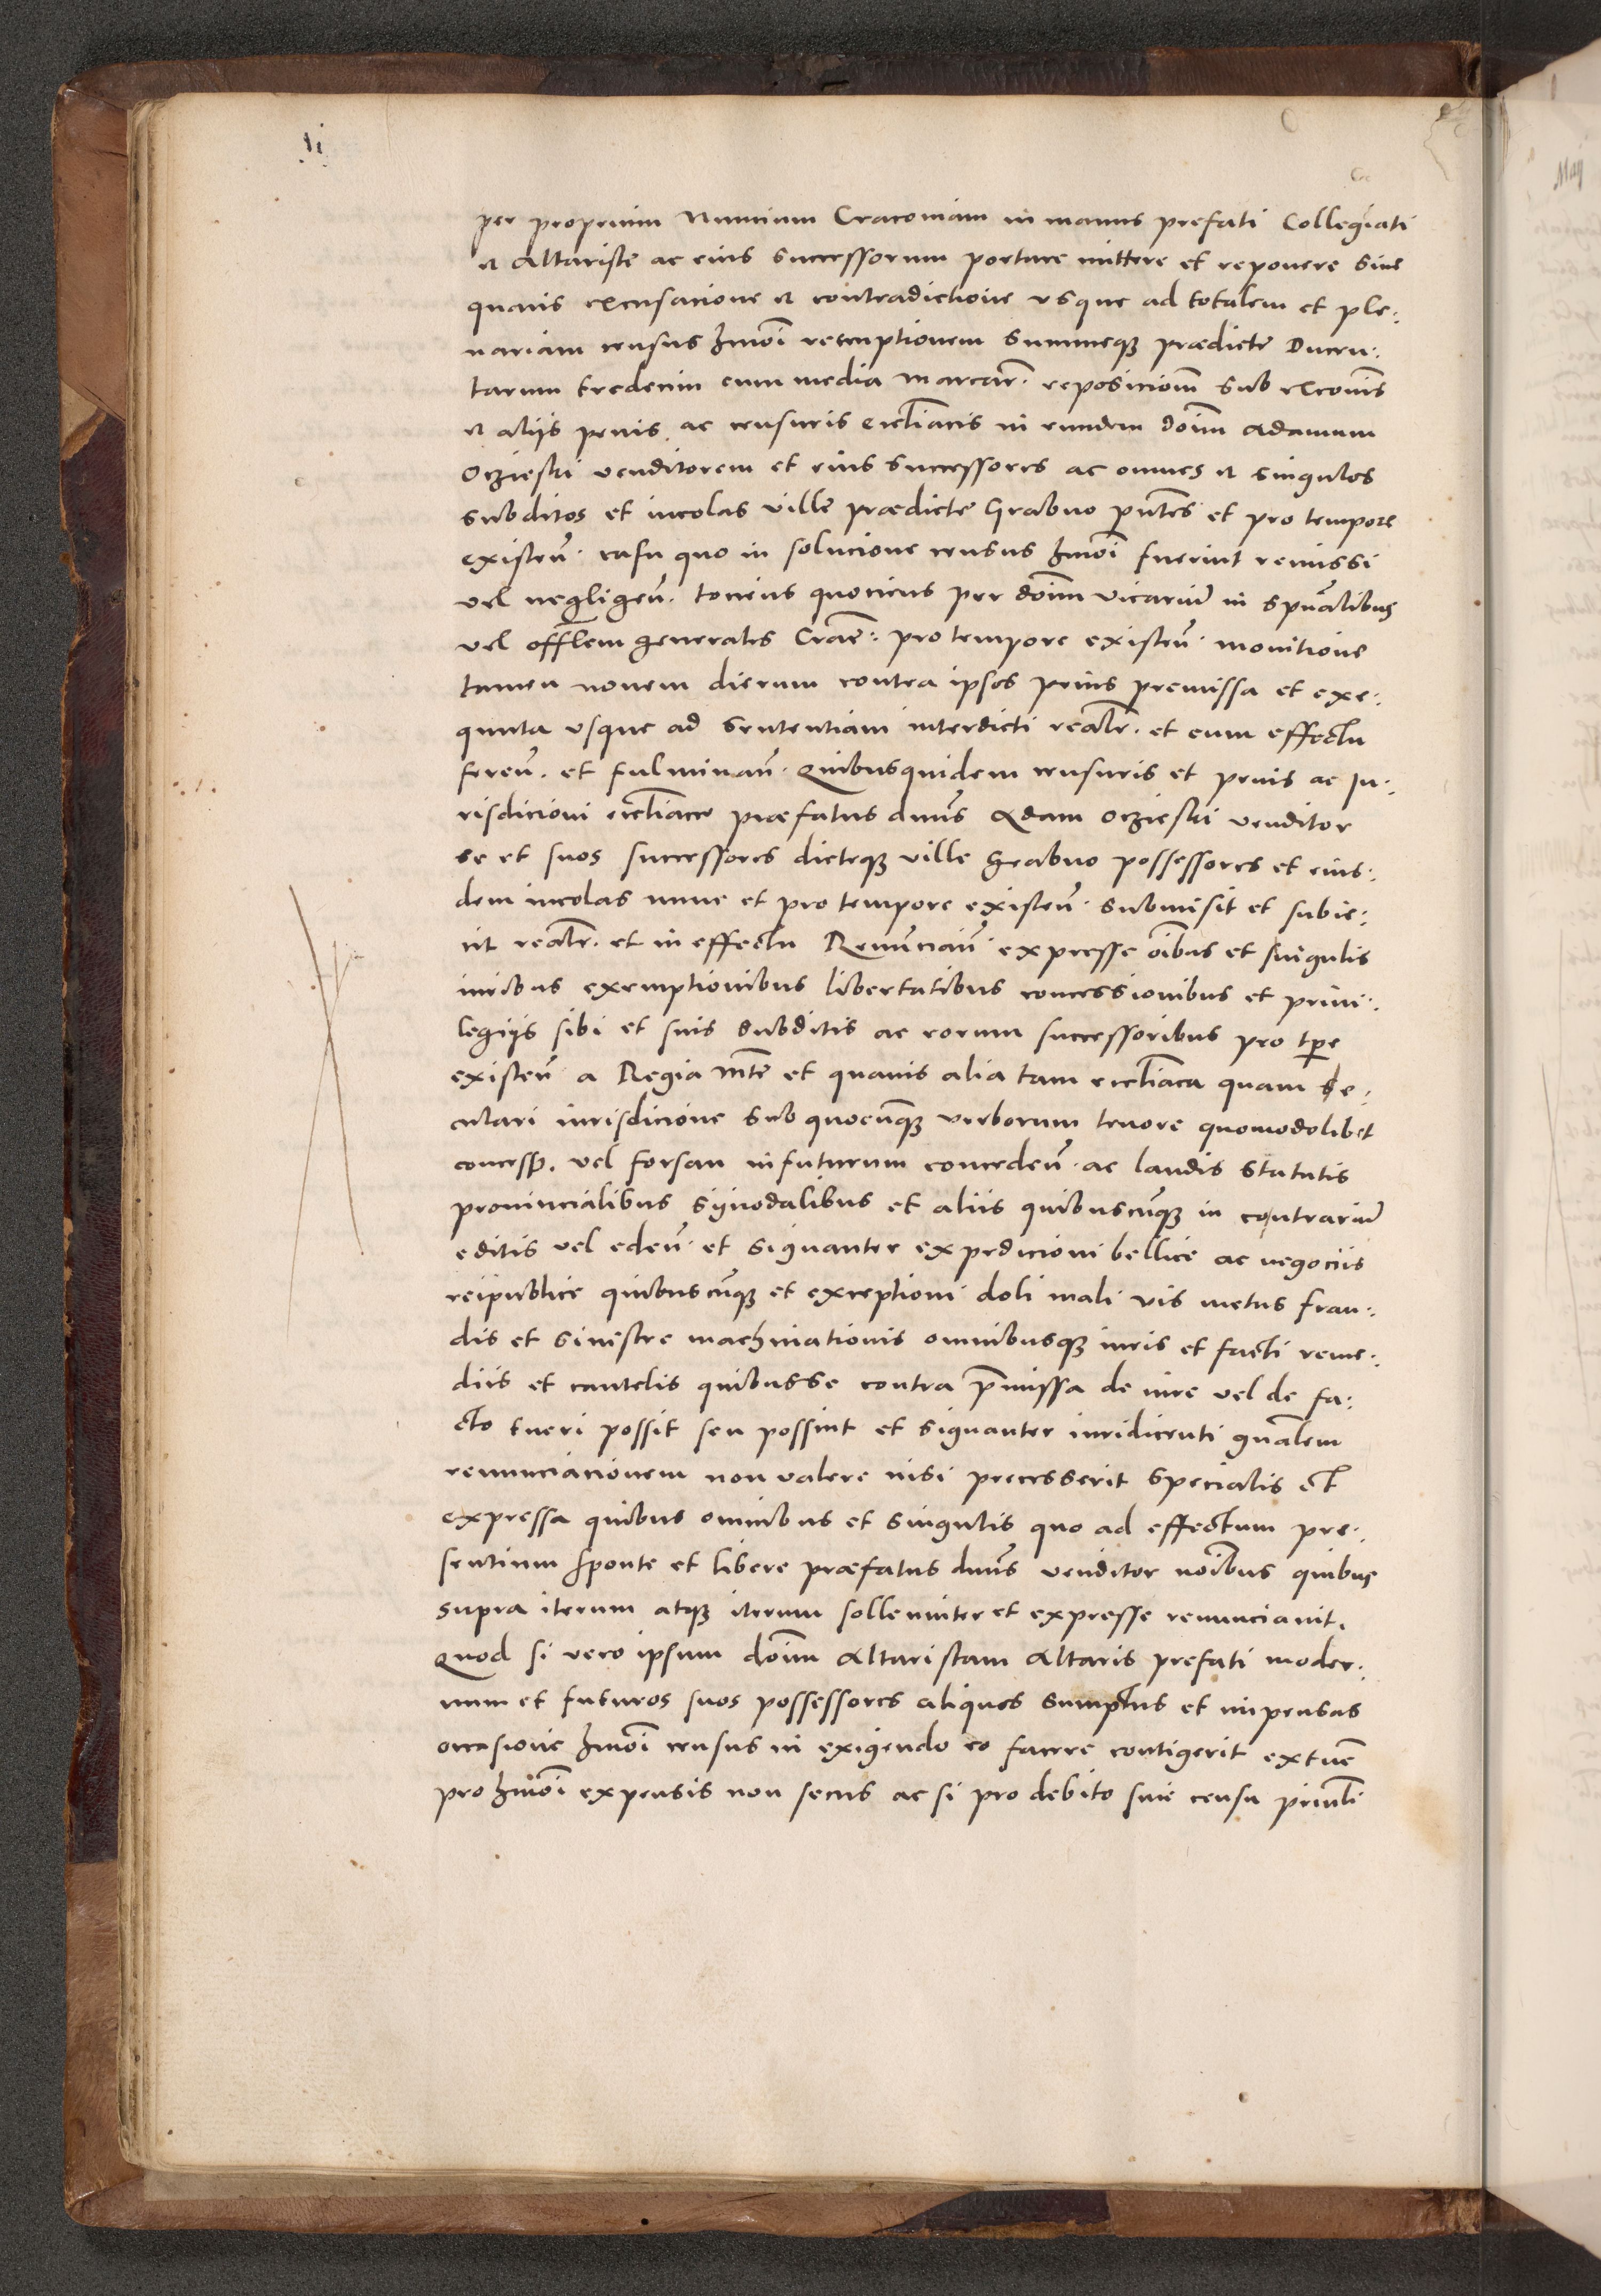 per proprium Nuncium Cracoviam in manus prefati Collegiati
et Altariste ac eius successorum portare mittere et reponere sine
quavis excusacione et contradictione usque ad totalem et ple:
nariam census hmoi̅ reemptionem summeq3 prædicte Ducen:
tarum tredecim cum media marcar̅. reposiciom̅ sub exco̅nis
et aliis penis ac censuris eccl̅iacis in eundem Doi̅m Adamum
Oczieski venditorem et eius successores ac omnes et singulos
subditos et incolas ville prædicte Grabno pn̅tes et pro tempore
existen̅. casu quo in solucione census hmoi̅ fuerint remissi
vel negligen̅. tociens quociens per doi̅m vicariu̅ in spu̅alibus
vel offl̅em generales Crac̅: pro tempore existen̅. monitione
tamen novem dierum contra ipsos prius premissa et exe:
quuta usque ad sententiam interdicti realr̅. et cum effectu
feren̅. et fulminan̅. Quibusquidem censuris et penis ac Ju:
risdicioni eccl̅iace præfatus dnu̅s Adam Oczieski venditor
se et suos successores dicteq3 ville Grabno possessores et eius:
dem incolas nunc et pro tempore existen̅. submisit et subie:
cit realr̅. et in effectu Renu̅cian̅. expresse oi̅bus et singulis
iuribus exemptionibus libertatibus concessionibus et privi:
legiis sibi et suis subditis ac eorum successoribus pro tp̅re
existen̅ a Regia Mt̅e et quavis alia tam eccl̅iaca quam se:
culari iurisdicione sub quocu̅q3 verborum tenore quomodolibet
concess̅. vel forsan in futurum conceden̅. ac laudis statutis
provincialibus synodalibus et aliis quibuscu̅q3 in contrariu̅
editis vel eden̅. et signanter expedicioni bellice ac negociis
reipublice quibuscu̅q3 et exceptioni doli mali vis metus frau:
dis et sinistre machinationis omnibusq3 iuris et facti reme:
diis et cautelis quibus se contra p̅missa de iure vel de fa:
cto tueri possit seu possint et signanter iuridicenti gn̅alem
renunciacionem non valere nisi precesserit specialis et
expressa quibus omnibus et singulis quo ad effectum pre:
sentium sponte et libere præfatus dnu̅s venditor noi̅bus quibus
supra iterum atq3 iterum sollenniter et expresse renunciavit.
Quod si vero ipsum doi̅m Altaristam Altaris prefati moder:
num et futuros suos possessores aliquos sumptus et impensas
occasione hmoi̅ census in exigendo eo facere contigerit extu̅c
pro hmoi̅ expensis non secus ac si pro debito sive censu prin̅li